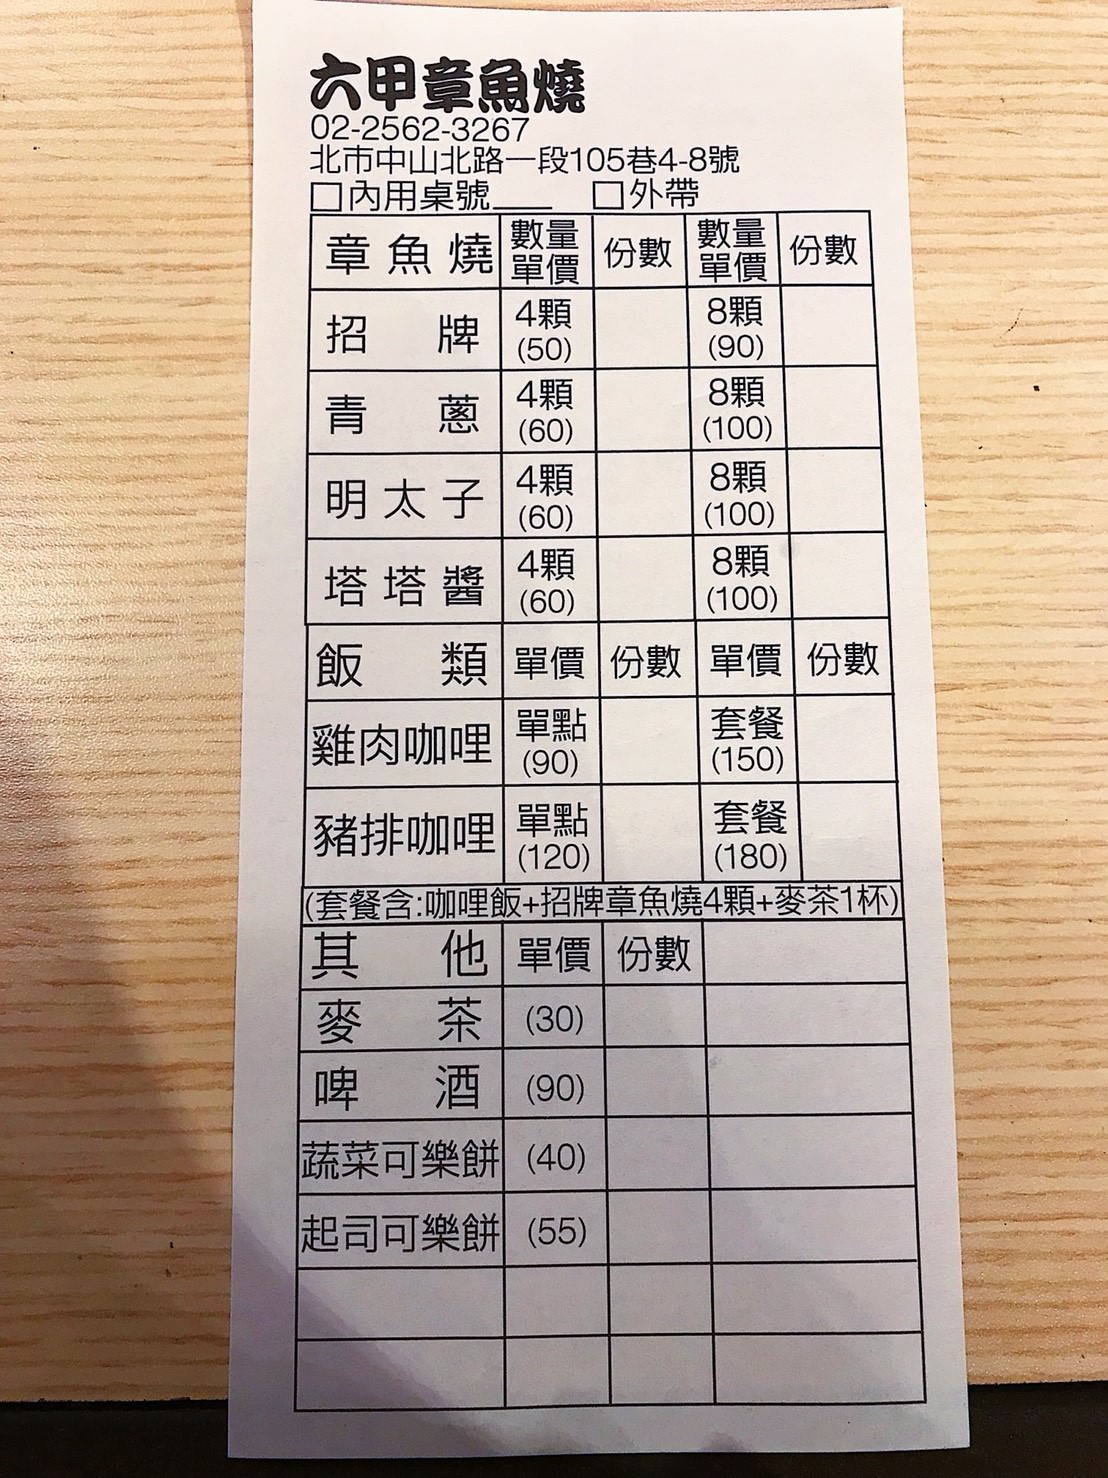 六甲章魚燒
02-2562-3267
北市中山北路一段105巷4-8號
□內用桌號___ □外帶
章魚燒 數量單價 份數 數量單價 份數
招牌 4顆(50) 8顆(90)
青蔥 4顆(60) 8顆(100)
明太子 4顆(60) 8顆(100)
塔塔醬 4顆(60) 8顆(100)
飯類 單價 份數 單價 份數
雞肉咖哩 單點(90) 套餐(150)
豬排咖哩 單點(120) 套餐(180)
(套餐含:咖哩飯+招牌章魚燒4顆+麥茶1杯)
其他 單價 份數
麥茶 (30)
啤酒 (90)
蔬菜可樂餅 (40)
起司可樂餅 (55)